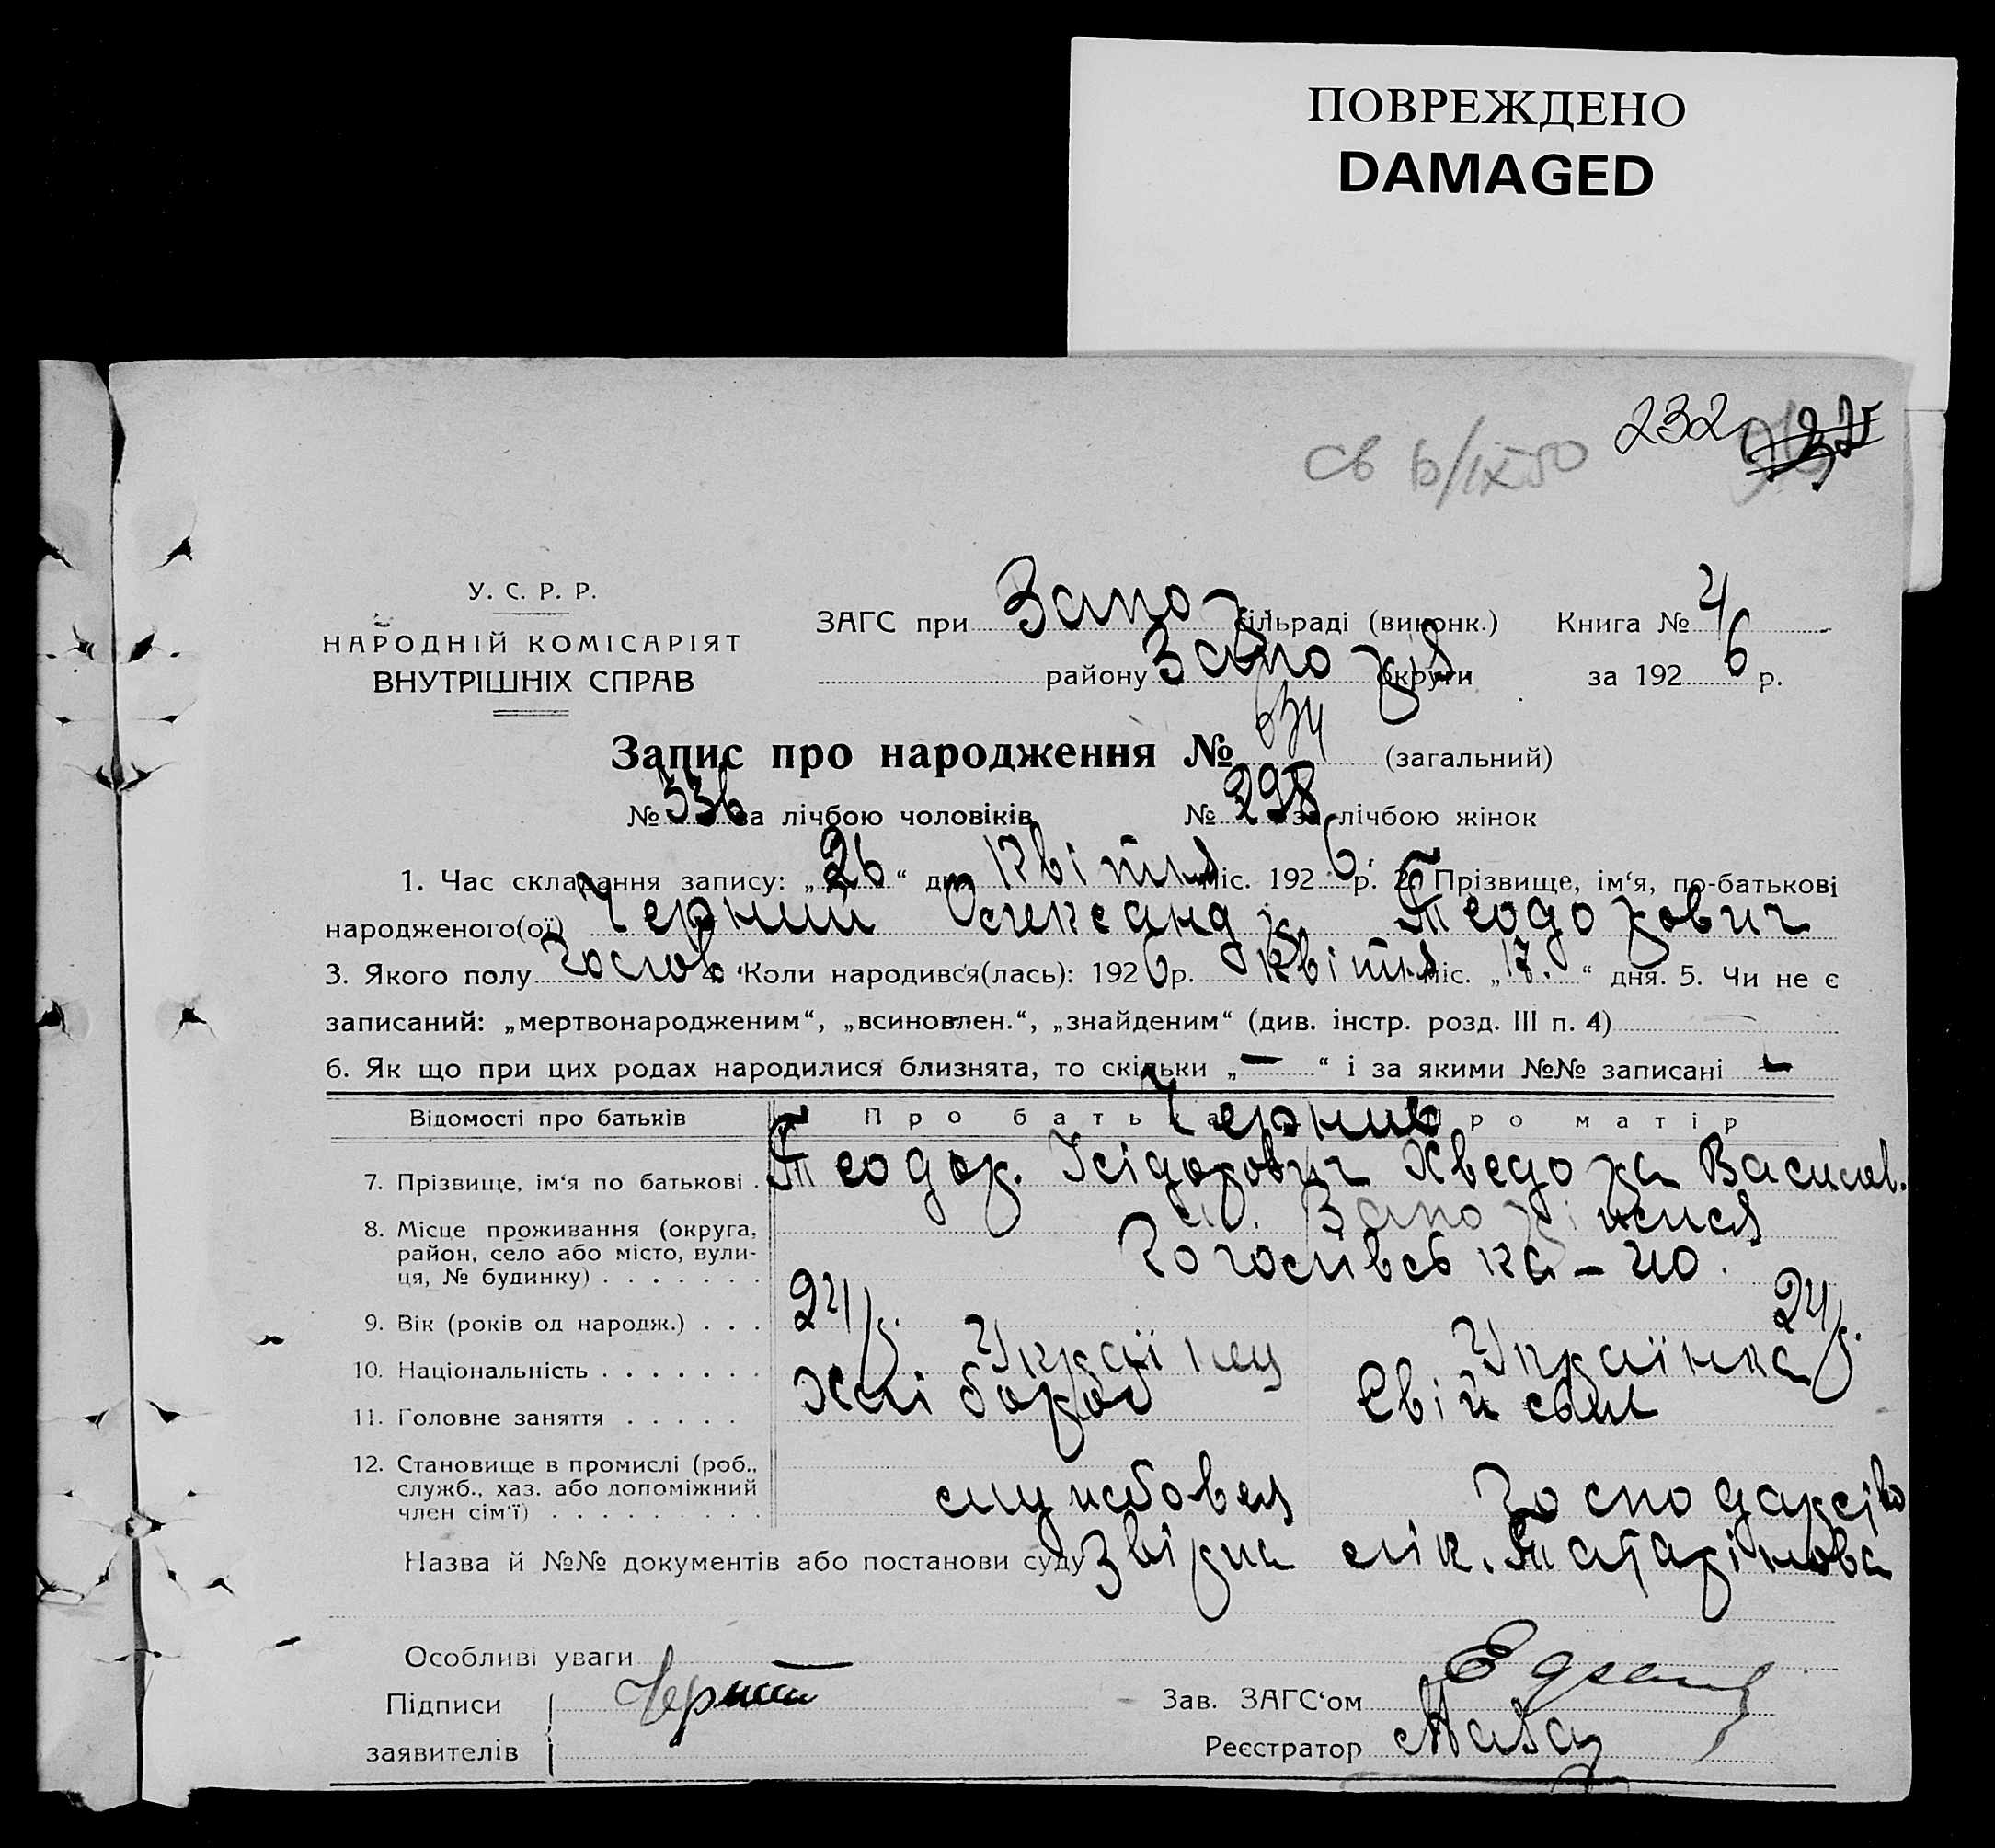 ПОВРЕЖДЕНО
DAMAGED
232
У. С. Р. Р.
НАРОДНІЙ КОМІСАРІЯТ
ВНУТРІШНІХ СПРАВ
ЗАГС при Запор сільраді (виконк.) Книга № 4
району Запоріз. округи за 1926 р.
Запис про народження № 634 (загальний)
№ 336 за лічбою чоловіків № 298 за лічбою жінок
1. Час складання запису: „26“ дня Квітня міс. 1926 р. 2. Прізвище, ім‘я, по-батькові
народженого(ої) Черний Олександр Теодорович
3. Якого полу Чолов. 4. Коли народився(лась): 1926 р. Квітня міс. „17.“ дня. 5. Чи не є
записаний: „мертвонародженим“, „всиновлен.“, „знайденим“ (див. інстр. розд. III п. 4)
6. Як що при цих родах народилися близнята, то скільки „—“ і за якими №№ записані —
Відомості про батьків Про батька Про матір
Черние
7. Прізвище, ім‘я по батькові . Теодор. Ісідорович Хведора Василів.
8. Місце проживання (округа, район, село або місто, вули-ця, № будинку) . . . . . . . м. Запоріжжя
Гоголівська – 40.
9. Вік (років од народж.) . . . 24 р. 24 р.
10. Національність . . . . . . . Українец Українка
11. Головне заняття . . . . . Хлібороб Свійське
12. Становище в промислі (роб., служб., хаз. або допоміжний член сім‘ї) . . . . . . . . . службовец Господарство
Назва й №№ документів або постанови суду Звірка лік. Татарінова
Особливі уваги —
Підписи заявителів Черний
Зав. ЗАГС‘ом
Реєстратор